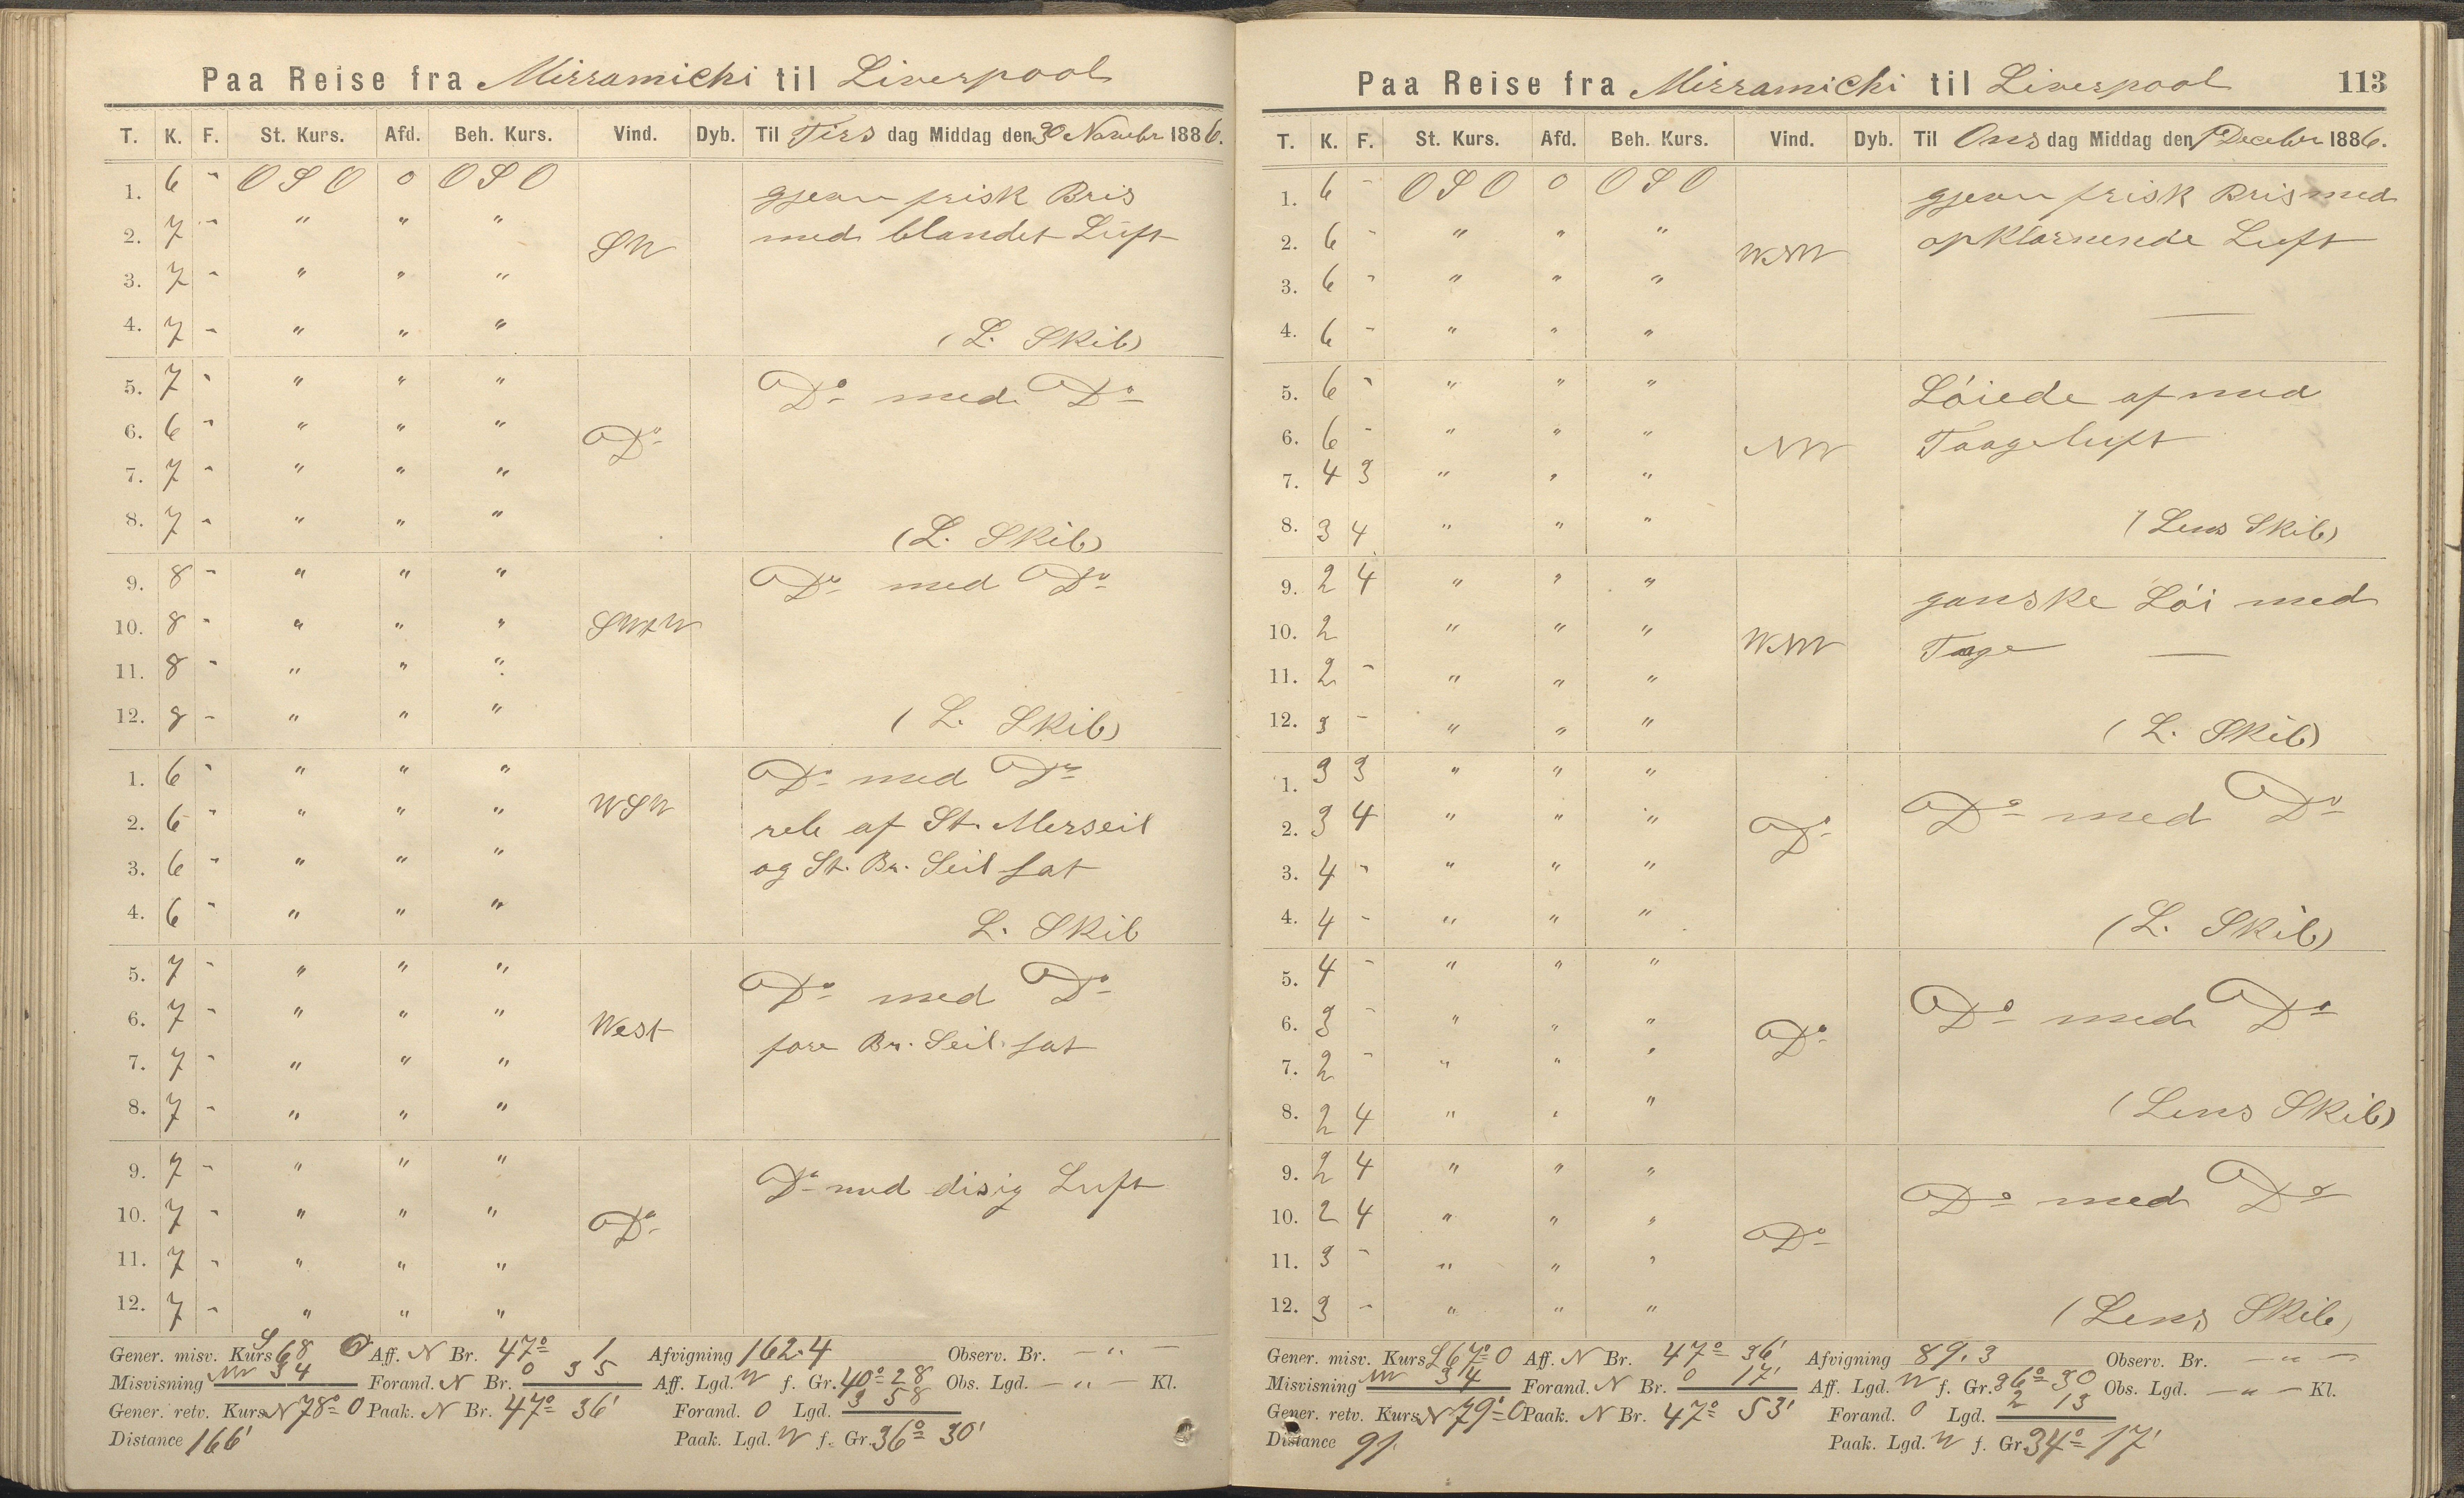 Paa Reise fra Mirramichi til Liverpool
T. K. F. St. Kurs. Afd. Beh. Kurs. Vind. Dyb. Til Tirs dag Middag den 30 Novebr 1886.
1. 6 - O S O 0 O S O gjevn frisk Bris
2. 7 - " " " SW med blandet Luft
3. 7 - " " "
4. 7 - " " " (L. Skib)
5. 7 - " " " Do med Do
6. 6 - " " " Do
7. 7 - " " "
8. 7 - " " " (L. Skib)
9. 8 - " " " Do med Do
10. 8 - " " " SWtW
11. 8 - " " "
12. 8 - " " " (L. Skib)
1. 6 - " " " Do med Do
2. 6 - " " " WSW reb af St. Merseil
3. 6 - " " " og St. Br. Seil sat
4. 6 - " " " L. Skib
5. 7 - " " " Do med Do
6. 7 - " " " West
7. 7 - " " " fore Br. Seil sat
8. 7 - " " "
9. 7 - " " " Do med disig Luft
10. 7 - " " " Do
11. 7 - " " "
12. 7 - " " "
Gener. misv. Kurs S 68 O Aff. N Br. 47° 1 Afvigning 162.4 Observ. Br. - " -
Misvisning NW 34 Forand. N Br. 0 35 Aff. Lgd. W f. Gr. 40° 28 Obs. Lgd. - " - Kl.
Gener. retv. Kurs N 78° O Paak. N Br. 47° 36' Forand. O Lgd. 3 58
Distance 166' Paak. Lgd. W f. Gr. 36° 30'
Paa Reise fra Mirramichi til Liverpool 113
T. K. F. St. Kurs. Afd. Beh. Kurs. Vind. Dyb. Til Ons dag Middag den 1e Decebr 1886.
1. 6 - O S O 0 O S O gjevn frisk Bris med
2. 6 - " " " WNW opklarnende Luft
3. 6 - " " "
4. 6 - " " "
5. 6 - " " " Löiede af med
6. 6 - " " " NW Taageluft
7. 4 3 " " "
8. 3 4 " " " (Lens Skib)
9. 2 4 " " " ganske Löi med
10. 2 " " " WNW Tage
11. 2 - " " "
12. 3 - " " " (L. Skib)
1. 3 3 " " "
2. 3 4 " " " Do Do med Do
3. 4 - " " "
4. 4 - " " " (L. Skib)
5. 4 - " " "
6. 3 - " " " Do Do med Do
7. 2 - " " "
8. 2 4 " " " (Lens Skib)
9. 2 4 " " " Do med Do
10. 2 4 " " " Do
11. 3 - " " "
12. 3 - " " " (Lens Skib)
Gener. misv. Kurs S 67° O Aff. N Br. 47° 36' Afvigning 89.3 Observ. Br. - " -
Misvisning NW 34 Forand. N Br. 0 17' Aff. Lgd. W f. Gr. 36° 30 Obs. Lgd. - " - Kl.
Gener. retv. Kurs N 79° O Paak. N Br. 47° 53' Forand. O Lgd. 2 13
Distance 91 Paak. Lgd. W f. Gr. 34° 17'